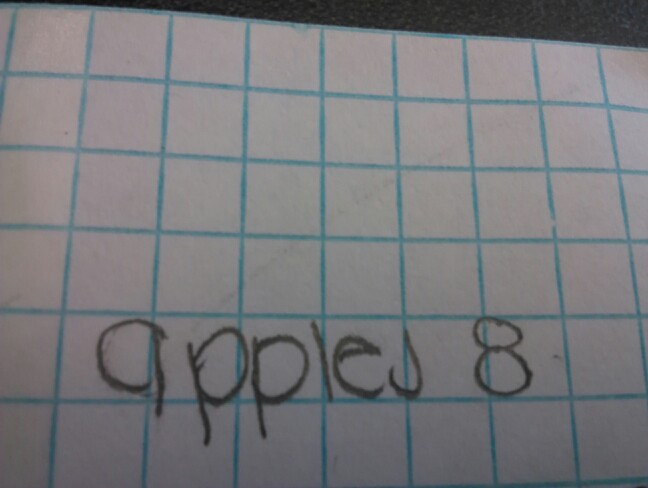 apples 8